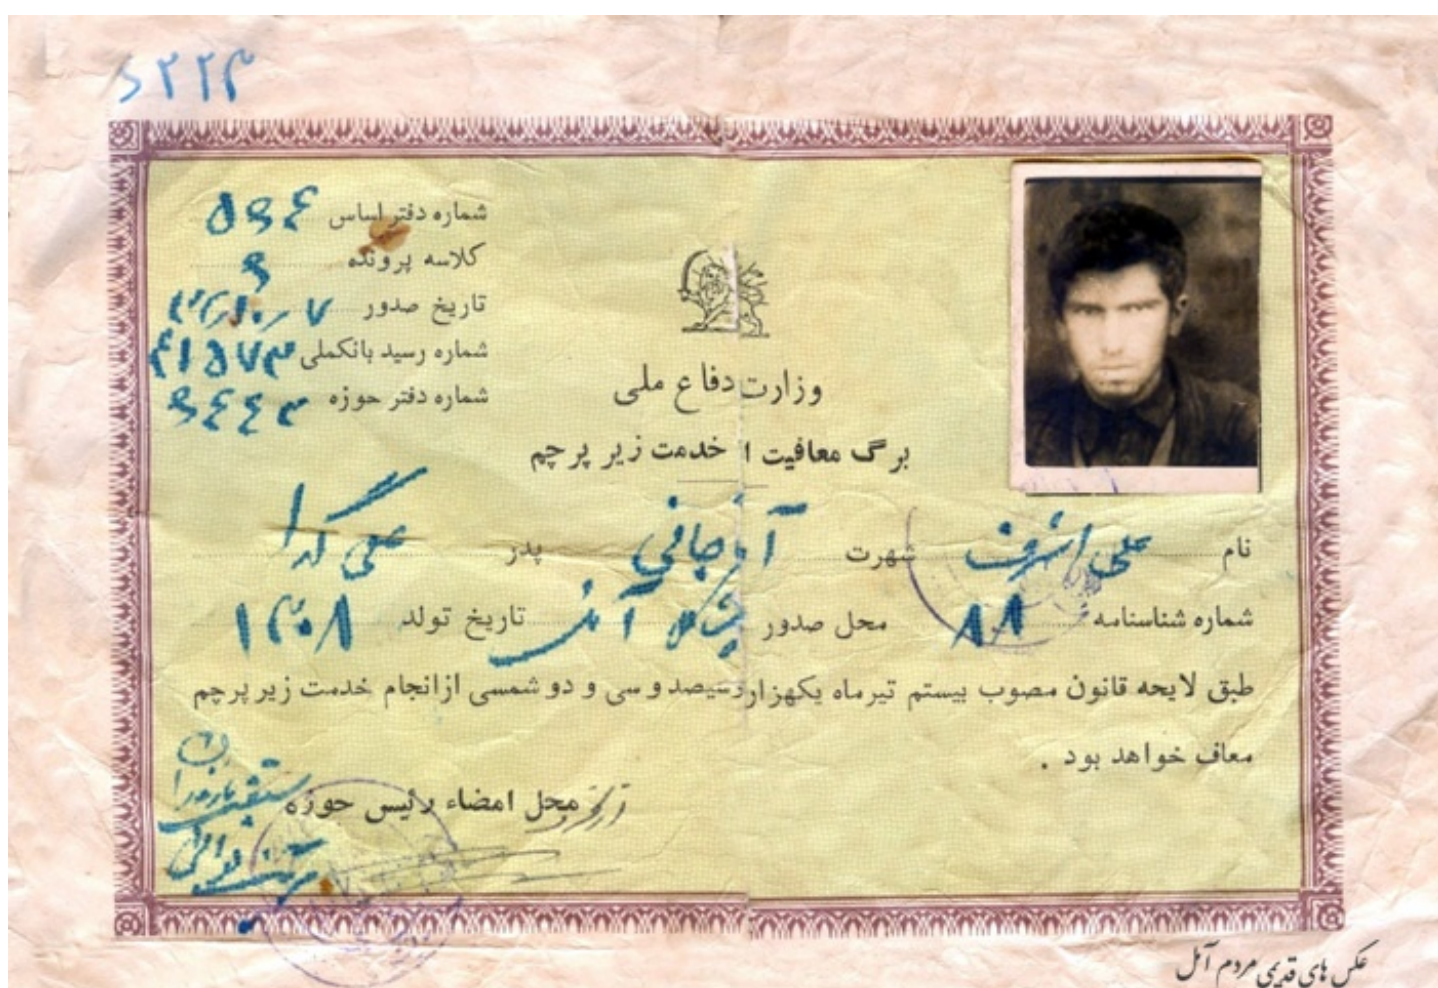 ۶۲۲۳
شماره دفتر اساس ۵۶۴
کلاسه پرونده ۶
تاریخ صدور
شماره رسید بانکملی ۴۱۵۷۳
شماره دفتر حوزه ۶۴۴۳
وزارت دفاع ملی
برگ معافیت از خدمت زیر پرچم
نام علی اشرف شهرت پدر علی گدا
شماره شناسنامه ۸۸ محل صدور آمل تاریخ تولد ۱۳۰۸
طبق لایحه قانون مصوب بیستم تیرماه یکهزار و سیصد و سی و دو شمسی از انجام خدمت زیر پرچم
معاف خواهد بود .
محل امضاء رئیس حوزه
عکس های قدیمی مردم آمل